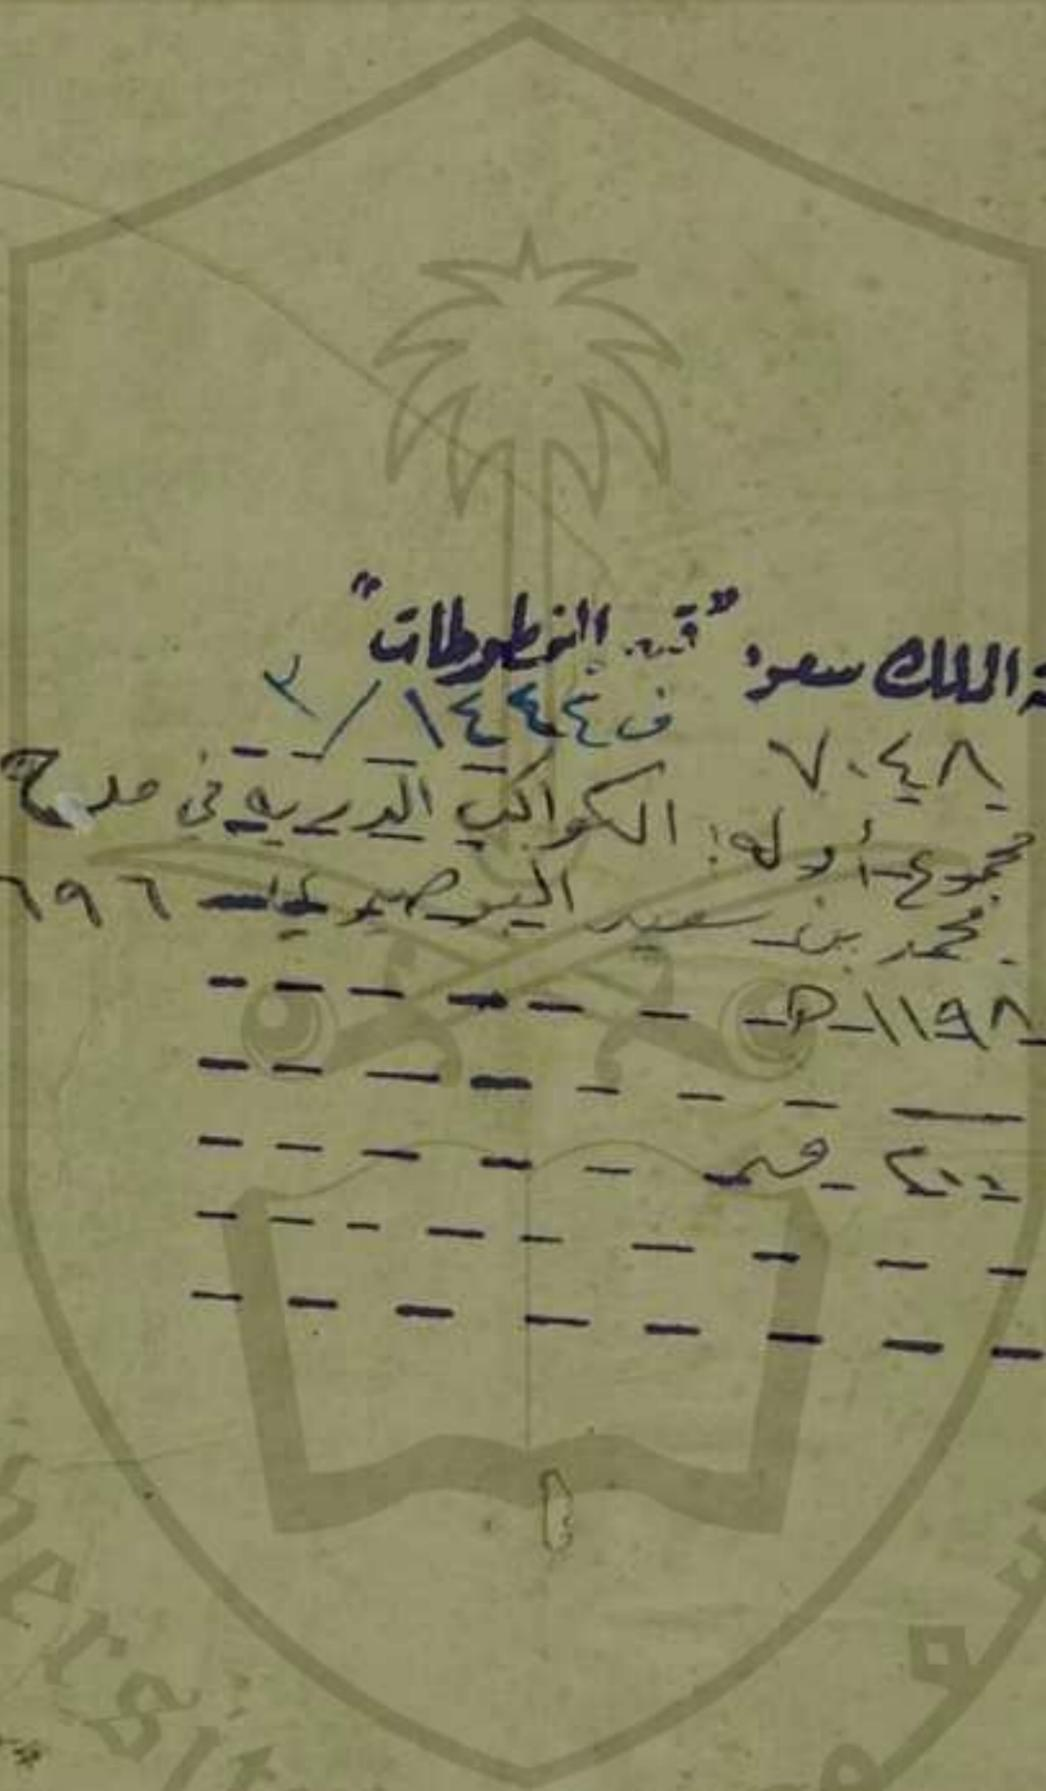 الملك سعود "قسم المخطوطات"
٧٠٤٨ ف ١٤٤٤ / ٣
مجموع أوله: الكواكب الدرية في مدح
محمد بن سعيد البوصيري - ٦٩٦
١١٩٨ هـ
versit